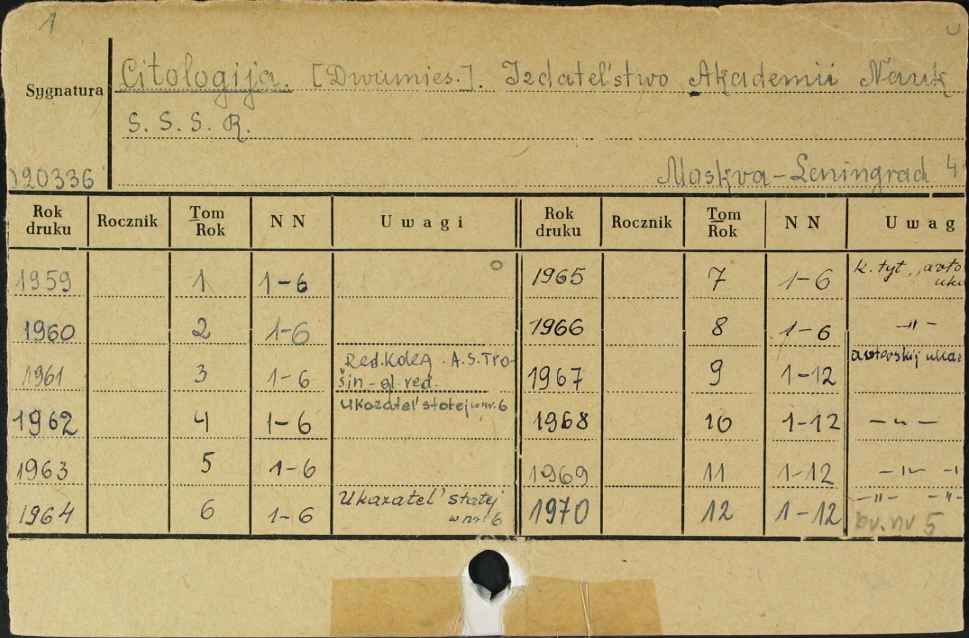 1
Sygnatura
Citologija. [Dwumies.]. Izdatel'stwo Akademii Nauk
S. S. S. R.
190336
Moskva-Leningrad
Rok druku Rocznik Tom Rok N N Uwagi Rok druku Rocznik Tom Rok N N Uwag
1959 1 1-6 1965 7 1-6 k. tyt.
1960 2 1-6 1966 8 1-6 -"-
1961 3 1-6 Red. Koleg. A.S. Tro-šin - gl. red. 1967 9 1-12 avtorskij
1962 4 1-6 Ukazatel' statej w nr. 6 1968 10 1-12 -"-
1963 5 1-6 1969 11 1-12 -"-
1964 6 1-6 Ukazatel' statej w nr 6 1970 12 1-12 -"- -"-
nr 5